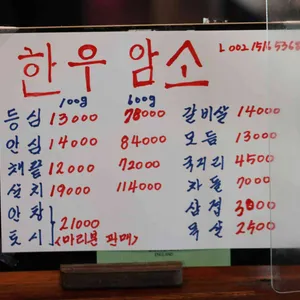 한우암소
L 002 1516 5368
100g 600g
등심 13000 78000
안심 14000 84000
채끝 12000 72000
설치 19000 114000
안창
토시 21000
(마리분 판매)
갈비살 14000
모듬 13000
국거리 4500
차돌 7000
삼겹 3000
목살 2500